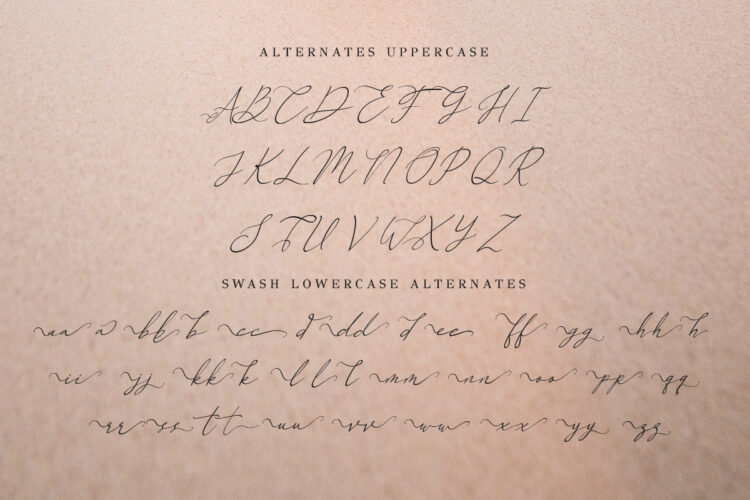 ALTERNATES UPPERCASE
A B C D E F G H I
J K L M N O P Q R
S T U V W X Y Z
SWASH LOWERCASE ALTERNATES
aa a bb b cc d dd d ee ff gg hh h
ii jj kk k l l l mm nn oo pp qq
rr ss tt uu vv ww xx yy zz